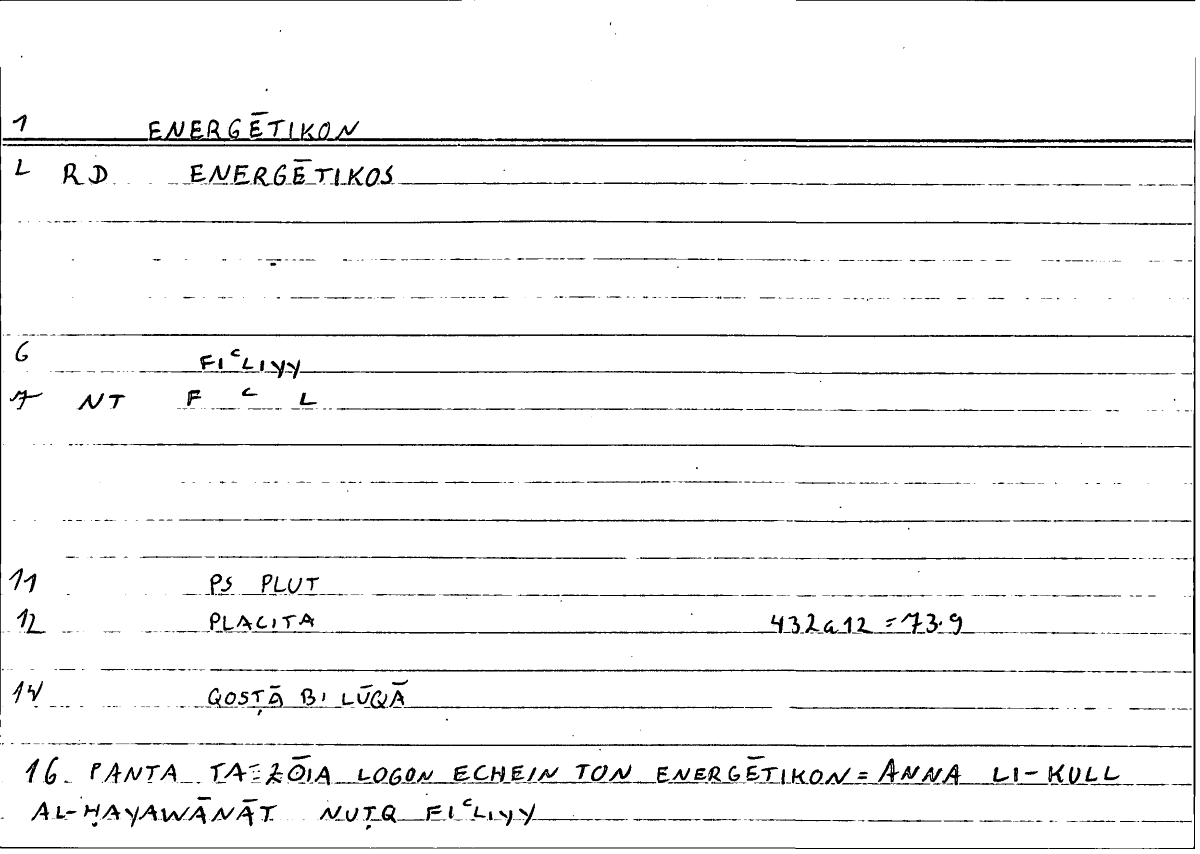 1 ENERGĒTIKON
L RD ENERGĒTIKOS
6 FIᶜLIYY
7 NT F ᶜ L
11 PS PLUT
12 PLACITA 432a12 = 73.9
14 QOSṬĀ BI LŪQĀ
16. PANTA TA ZŌIA LOGON ECHEIN TON ENERGĒTIKON = ANNA LI-KULL
AL-ḤAYAWĀNĀT NUṬQ FIᶜLIYY